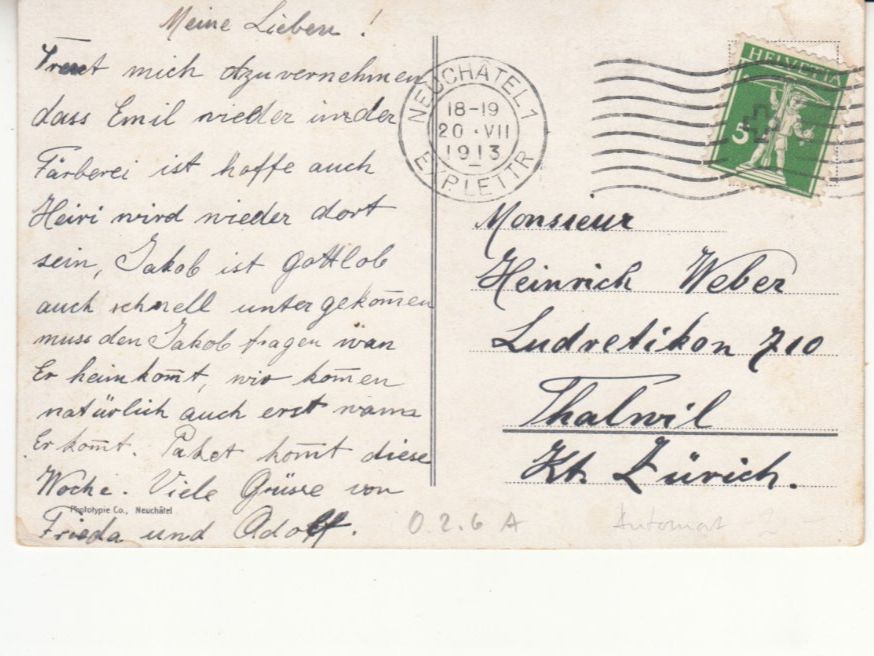 Meine Lieben!
Freut mich dzuvernehmen
dass Emil wieder in der
Färberei ist hoffe auch
Heiri wird wieder dort
sein, Jakob ist gottlob
auch schnell untergekom̅en
muss den Jakob fragen wan
Er heimkom̅t, wir kom̅en
natürlich auch erst wann
Er kom̅t. Paket kom̅t diese
Woche. Viele Grüsse von
Frieda und Adolf.
Phototypie Co., Neuchâtel
NEUCHÂTEL 1
18-19
20·VII
1913
EXP. LETTR
HELVETIA
5
Monsieur
Heinrich Weber
Ludretikon 710
Thalwil
Kt. Zürich.
O.2.6 A
Automat 2 -